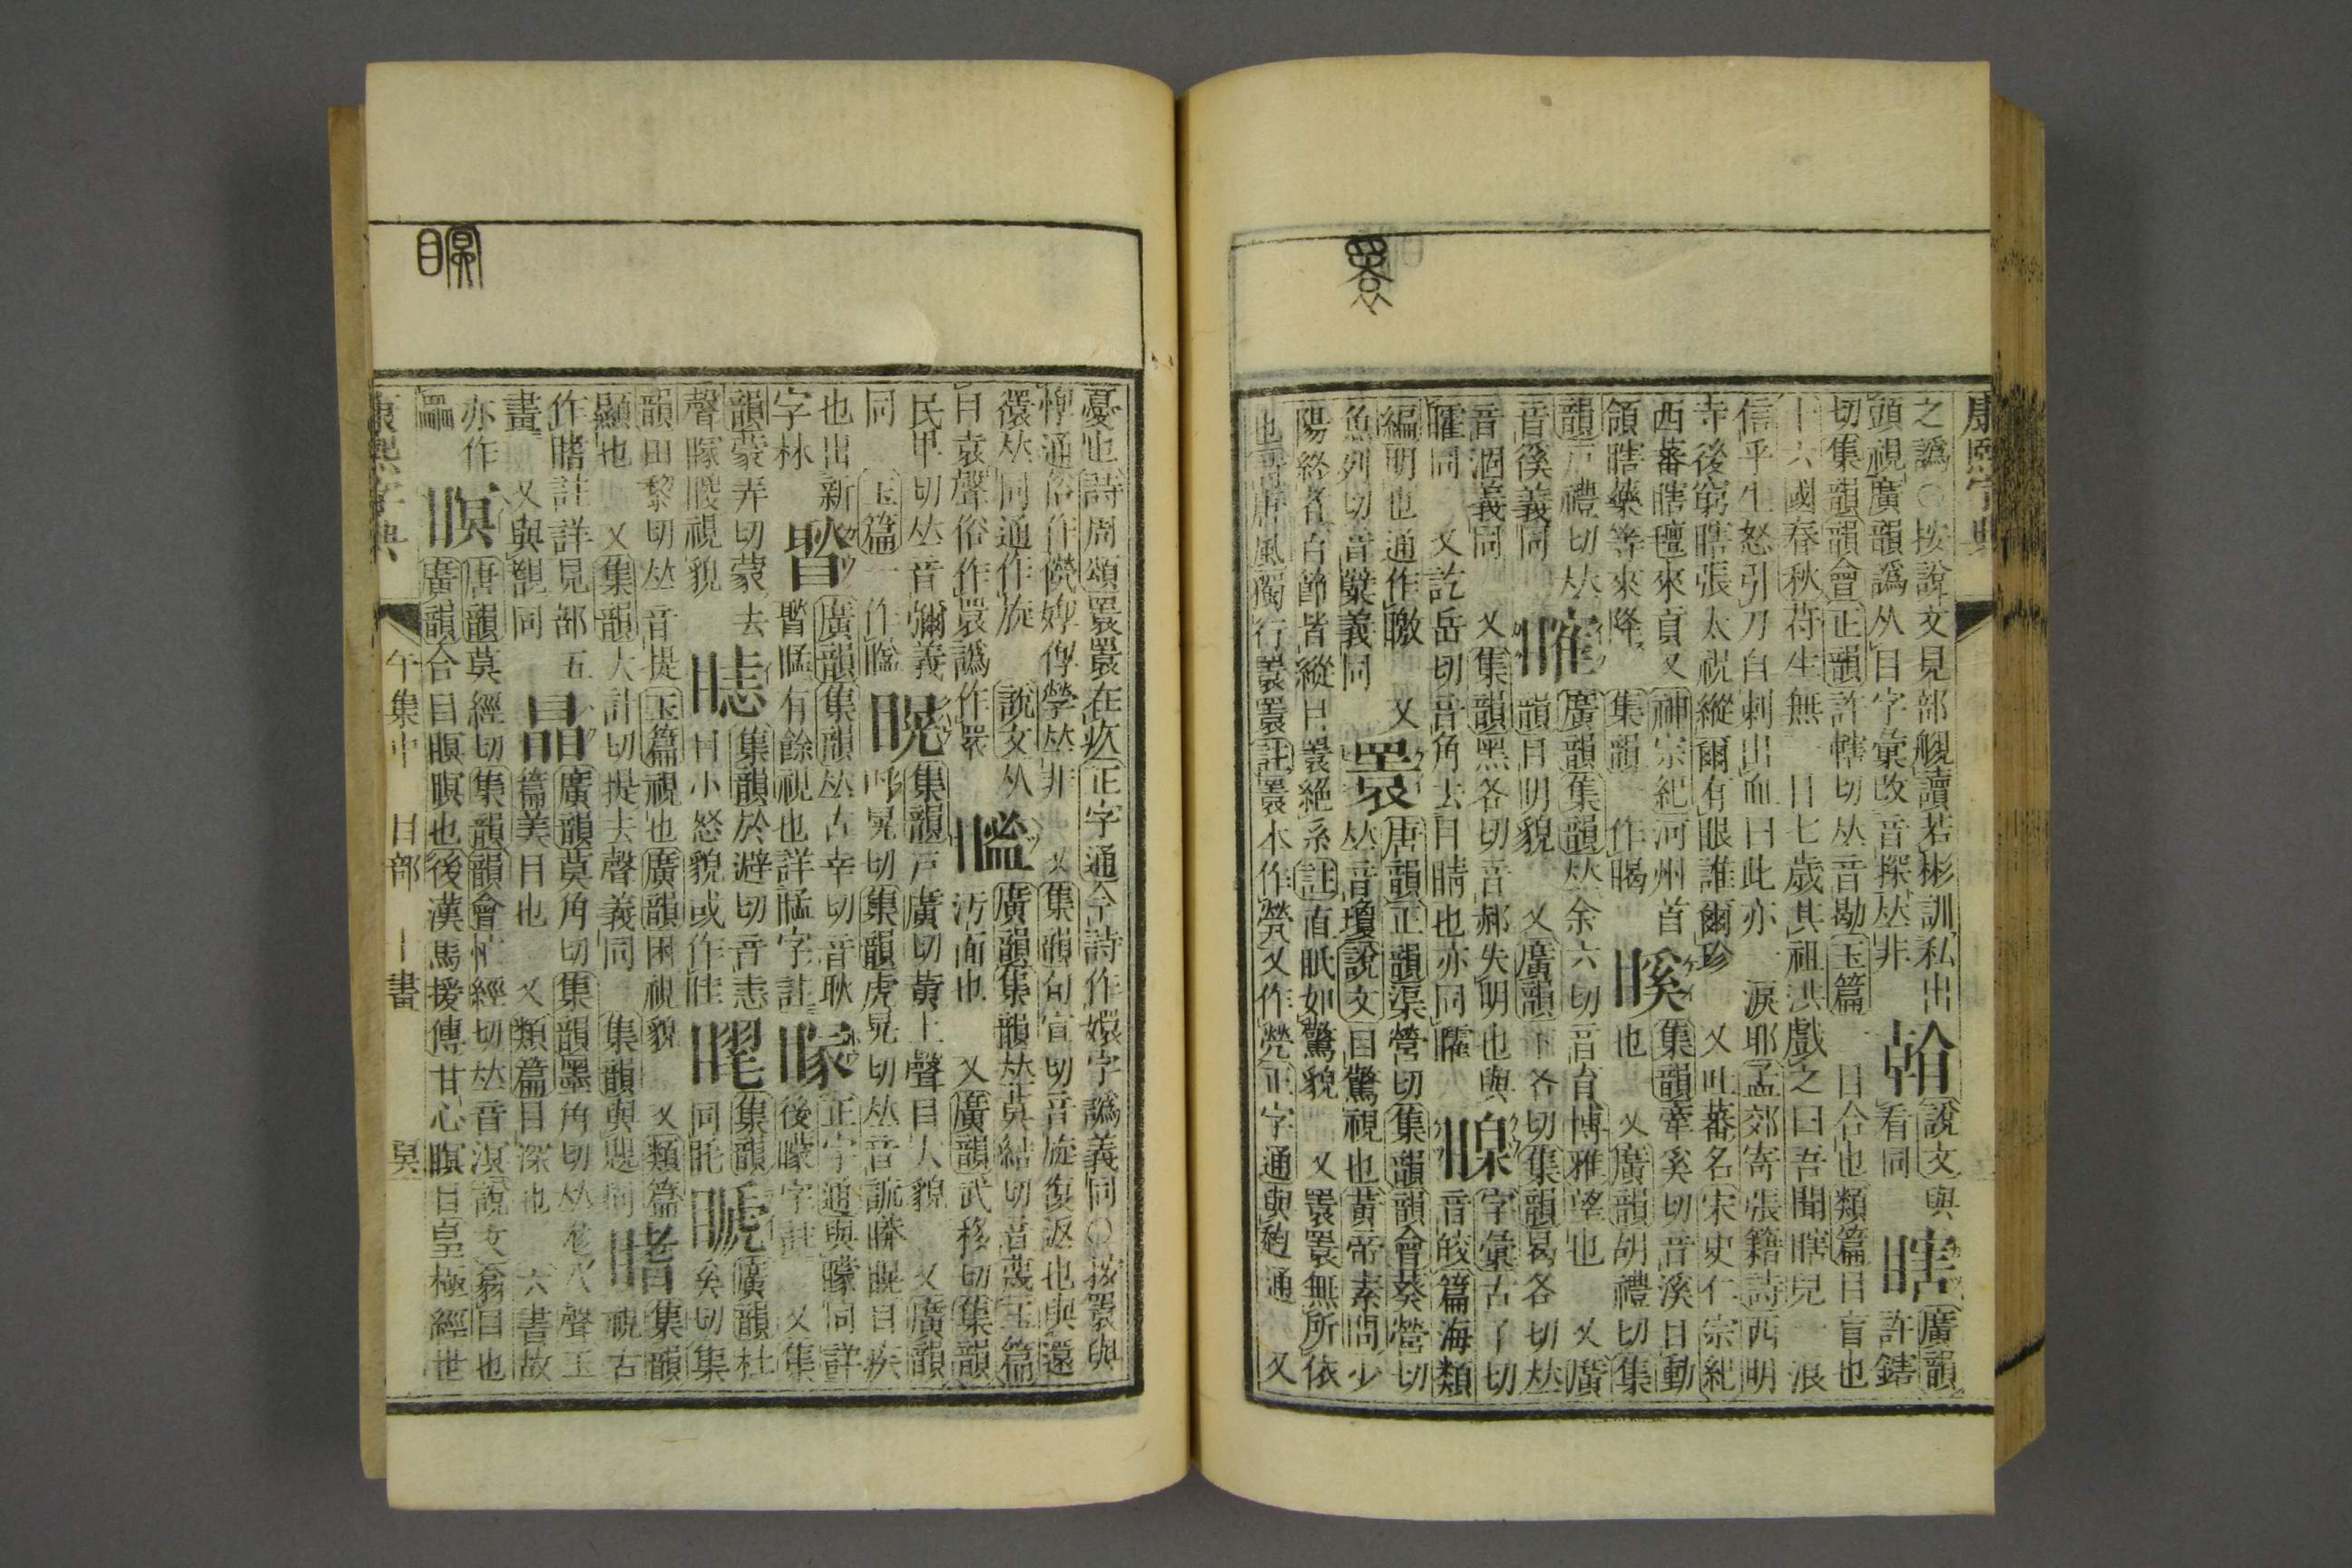 康熙字典
之譌○按說文見部覢讀若彬訓私出 說文與 廣韻
頭視廣韻譌从目字彙改音探𠀤非 看同 瞎 許鎋
切集韻韻會正韻許轄切𠀤音勘玉篇一目合也類篇目盲也
十六國春秋苻生無一目七歲其祖洪戲之曰吾聞瞎兒一淚
信乎生怒引刀自刺出血曰此亦一淚耶孟郊寄張籍詩西明
寺後窮瞎張太祝縱爾有眼誰爾珍 又吐蕃名宋史仁宗紀
西蕃瞎氊來貢又神宗紀河州首 䁈 集韻牽奚切音溪目動
領瞎藥等來降 集韻一作暍 也 又廣韻胡禮切集
韻戶禮切𠀤 䂄 廣韻集韻𠀤余六切音育博雅望也 又廣
音徯義同 韻目明貌 又廣韻下各切集韻曷各切𠀤
音涸義同 又集韻黑各切音郝失明也與 字彙古了切
矐同 又訖岳切音角去目睛也亦同矐 音皎篇海類
編明也通作瞮 又 睘 唐韻正韻渠營切集韻韻會葵營切
魚列切音櫱義同 𠀤音瓊說文目驚視也黃帝素問少
陽終者百節皆縱目睘絕系註直眂如驚貌 又睘睘無所依
也詩唐風獨行睘睘註睘本作煢又作㷀正字通與趜通 又
憂也詩周頌睘睘在疚正字通今詩作嬛字譌義同○按睘與
惸通俗作㷀 𠀤非 又集韻旬宣切音旋復返也與還
𠀤同通作旋 說文从 廣韻集韻𠀤莫結切音蔑玉篇
目袁聲俗作瞏譌作睘 汚面也 又廣韻武移切集韻
民卑切𠀤音彌義 集韻戶廣切黃上聲目大貌 又廣韻
同 玉篇一作 㫛 呼晃切集韻虎晃切𠀤音謊 目疾
也出新 廣韻集韻𠀤古幸切音耿 正字通與矇同詳
字林 有餘視也詳 字註 䁅 後矇字註 又集
韻蒙弄切蒙去 集韻於避切音恚 集韻 廣韻杜
聲 視貌 目小怒貌或作眭 同眊 䚦 奚切集
韻田黎切𠀤音提玉篇視也廣韻困視貌 又類篇 集韻
顯也 又集韻大計切提去聲義同 集韻與題同 睹 視古
作睹註詳見部五 廣韻莫角切集韻墨角切𠀤尨入聲玉
畫 又與覩同 篇美目也 又類篇目深也 六書故
亦作 唐韻莫經切集韻韻會忙經切𠀤音溟說文翕目也
瞑 廣韻合目瞑瞑也後漢馬援傳甘心瞑目皇極經世
康熙字典 午集中 目部 十畫